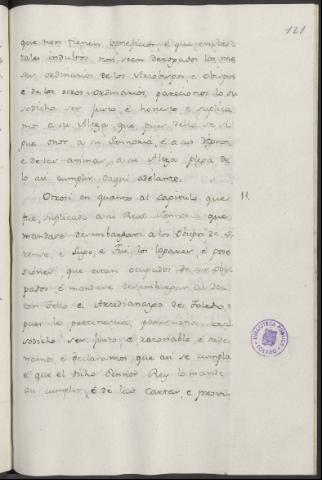 121
que non tienen beneficios, e que en estos
tales indultos non sean derogados los me
ses ordinarios de los Arzobispos, e Obispos
e de los otros Ordinarios, parecionos lo su
sodicho ser justo, é honesto e suplica
mos a su Alteza que, pues dello se si
gue onor a su Sennoria, é a sus Regnos,
é de las animas, a su Alteza plega de
lo asi cumplir daqui adelante.
Otrosi en quanto al capitulo que
fue suplicado a su Real Sennoria que
mandase desembargar a los Obispos de
e Lugo, e los lugares, é pose
siones que estan ocupados de sus obis
pados, é mandase desembargar al doc
tor Tello el Arcedianazgo de Toledo,
pues le pertenescia, parecionos lo
susodicho ser justo, é razonable, é orde
namos, é declaramos que asi se cumpla
é que el dicho Sennor Rey lo mande
asi cumplir, é dé sus Cartas, e provi
11.
BIBLIOTECA PUBLICA
TOLEDO